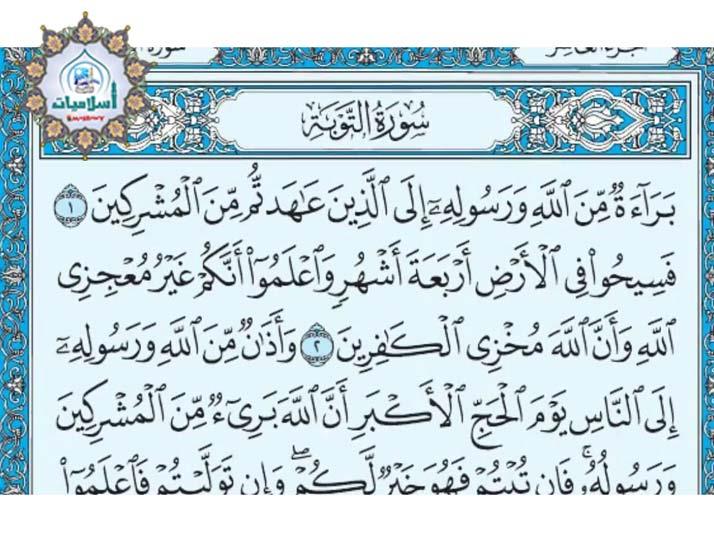 أسلاميات
سُورَةُ التَّوْبَةِ
بَرَآءَةٌ مِّنَ ٱللَّهِ وَرَسُولِهِۦٓ إِلَى ٱلَّذِينَ عَٰهَدتُّم مِّنَ ٱلْمُشْرِكِينَ ١
فَسِيحُوا۟ فِى ٱلْأَرْضِ أَرْبَعَةَ أَشْهُرٍ وَٱعْلَمُوٓا۟ أَنَّكُمْ غَيْرُ مُعْجِزِى
ٱللَّهِ وَأَنَّ ٱللَّهَ مُخْزِى ٱلْكَٰفِرِينَ ٢ وَأَذَٰنٌ مِّنَ ٱللَّهِ وَرَسُولِهِۦٓ
إِلَى ٱلنَّاسِ يَوْمَ ٱلْحَجِّ ٱلْأَكْبَرِ أَنَّ ٱللَّهَ بَرِىٓءٌ مِّنَ ٱلْمُشْرِكِينَ
وَرَسُولُهُۥ ۚ فَإِن تُبْتُمْ فَهُوَ خَيْرٌ لَّكُمْ ۖ وَإِن تَوَلَّيْتُمْ فَٱعْلَمُوٓا۟